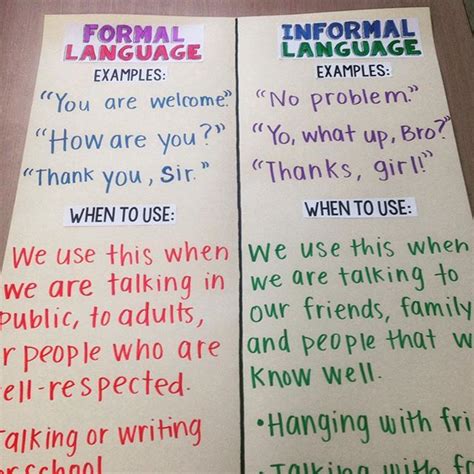 FORMAL
LANGUAGE
EXAMPLES:
"You are welcome."
"How are you?"
"Thank you, Sir."
WHEN TO USE:
We use this when
we are talking in
public, to adults,
r people who are
ell-respected.
Talking or writing
r school
INFORMAL
LANGUAGE
EXAMPLES:
"No problem."
"Yo, what up, Bro?"
"Thanks, girl!"
WHEN TO USE:
We use this when
we are talking to
our friends, family
and people that w
know well.
•Hanging with fri
•Talking with f